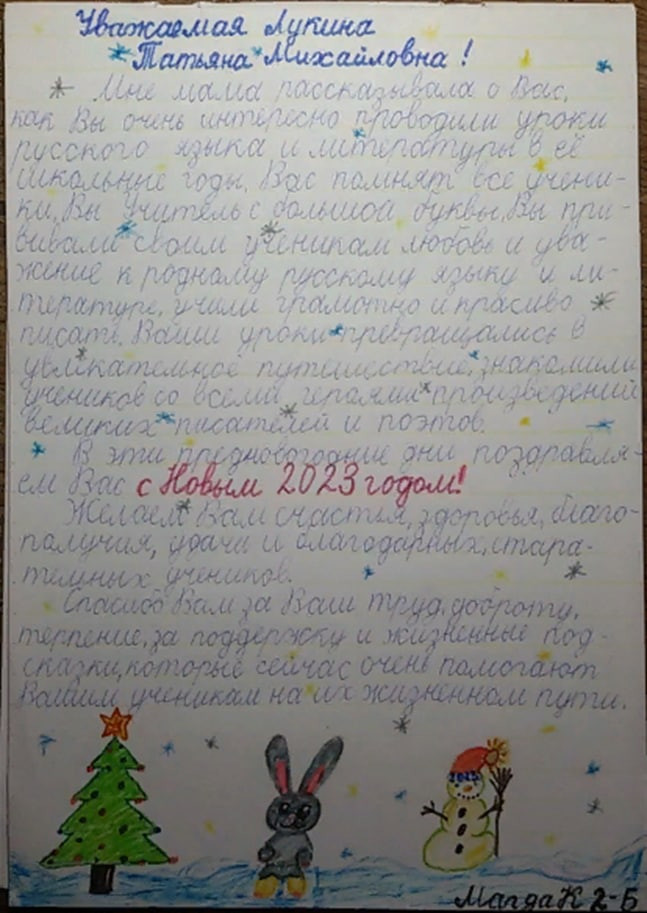 Уважаемая Лукина
Татьяна Михайловна!
Мне мама рассказывала о Вас,
как Вы очень интересно проводили уроки
русского языка и литературы в её
школьные годы. Вас помнят все учени-
ки, Вы Учитель с большой буквы. Вы при-
вивали своим ученикам любовь и ува-
жение к родному русскому языку и ли-
тературе, учили грамотно и красиво
писать. Ваши уроки превращались в
увлекательное путешествие, знакомили
учеников со всеми героями произведений
великих писателей и поэтов.
В эти предновогодние дни поздравля-
ем Вас с Новым 2023 годом!
Желаем Вам счастья, здоровья, благо-
получия, удачи и благодарных, стара-
тельных учеников.
Спасибо Вам за Ваш труд, доброту,
терпение, за поддержку и жизненные под-
сказки, которые сейчас очень помогают
Вашим ученикам на их жизненном пути.
2023
Магда К 2-Б